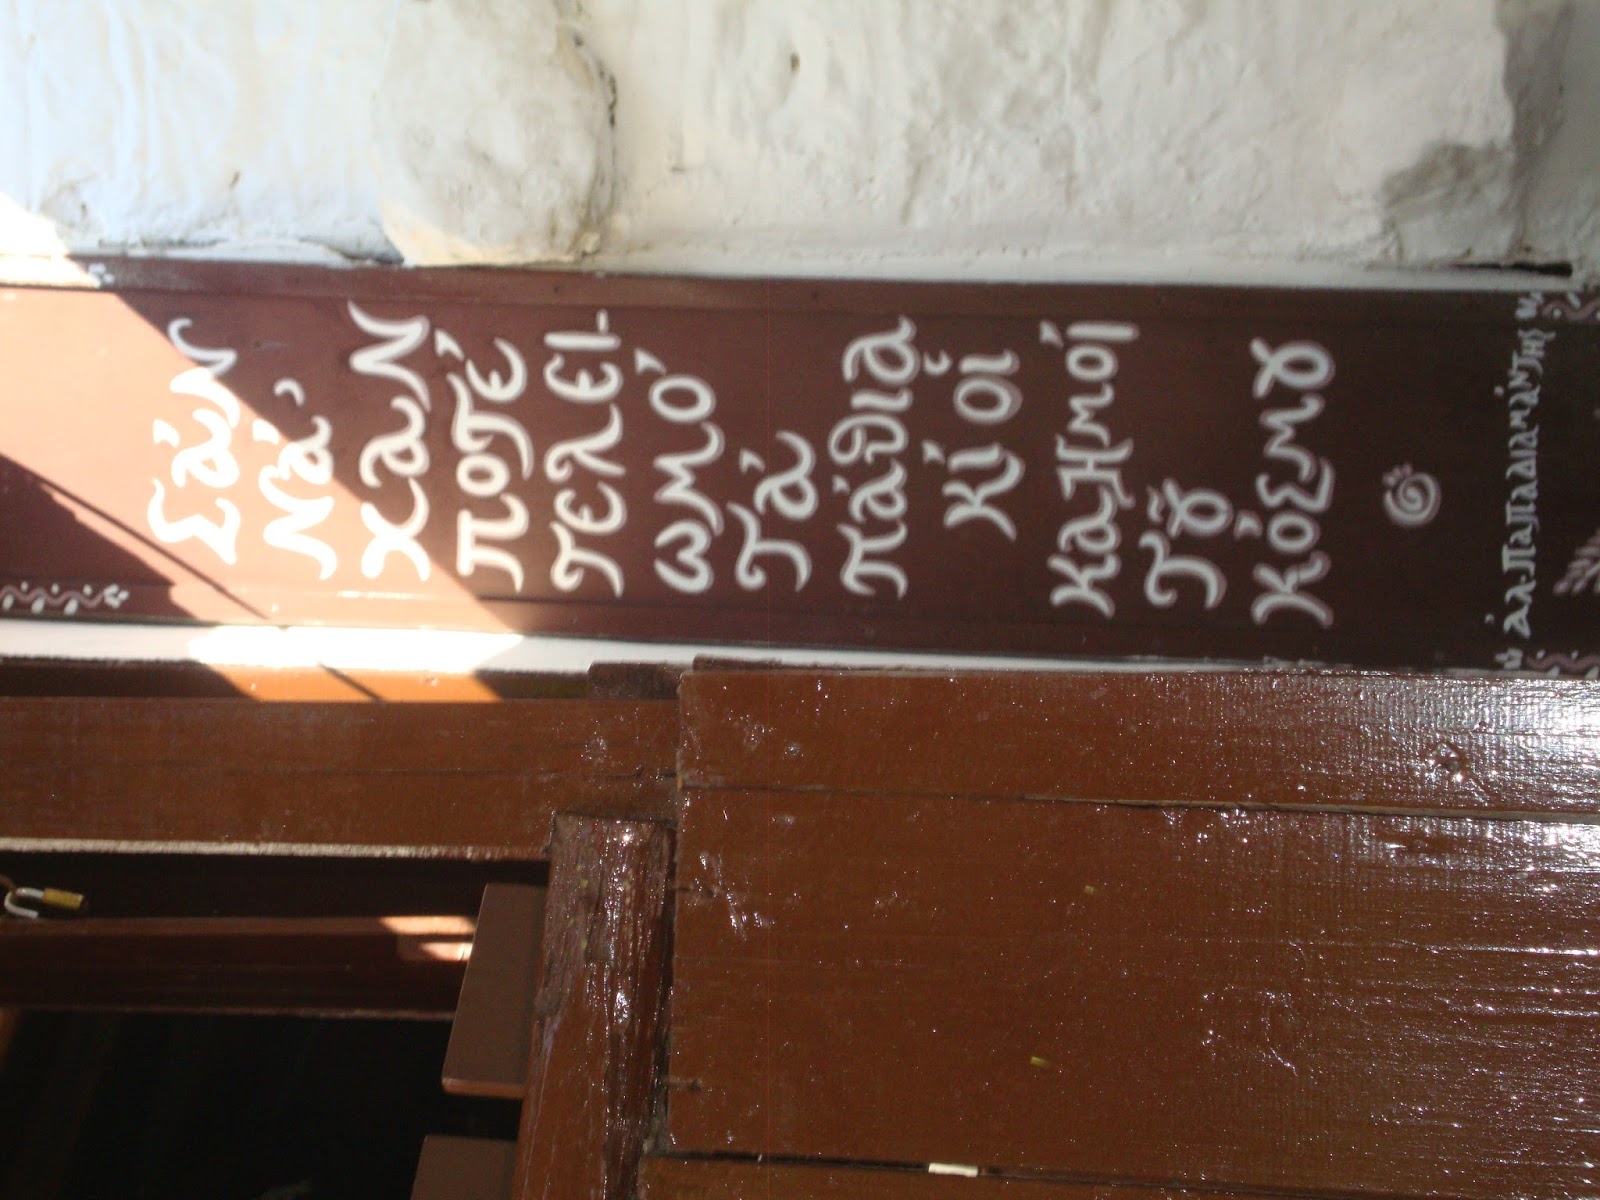 Σὰν
νά 'χαν
ποτέ
τελει-
ωμό
τά
πάθια
κί οἱ
καημοί
τȣ͂
κόσμȣ
ἀλ. Παπαδιαμάντης